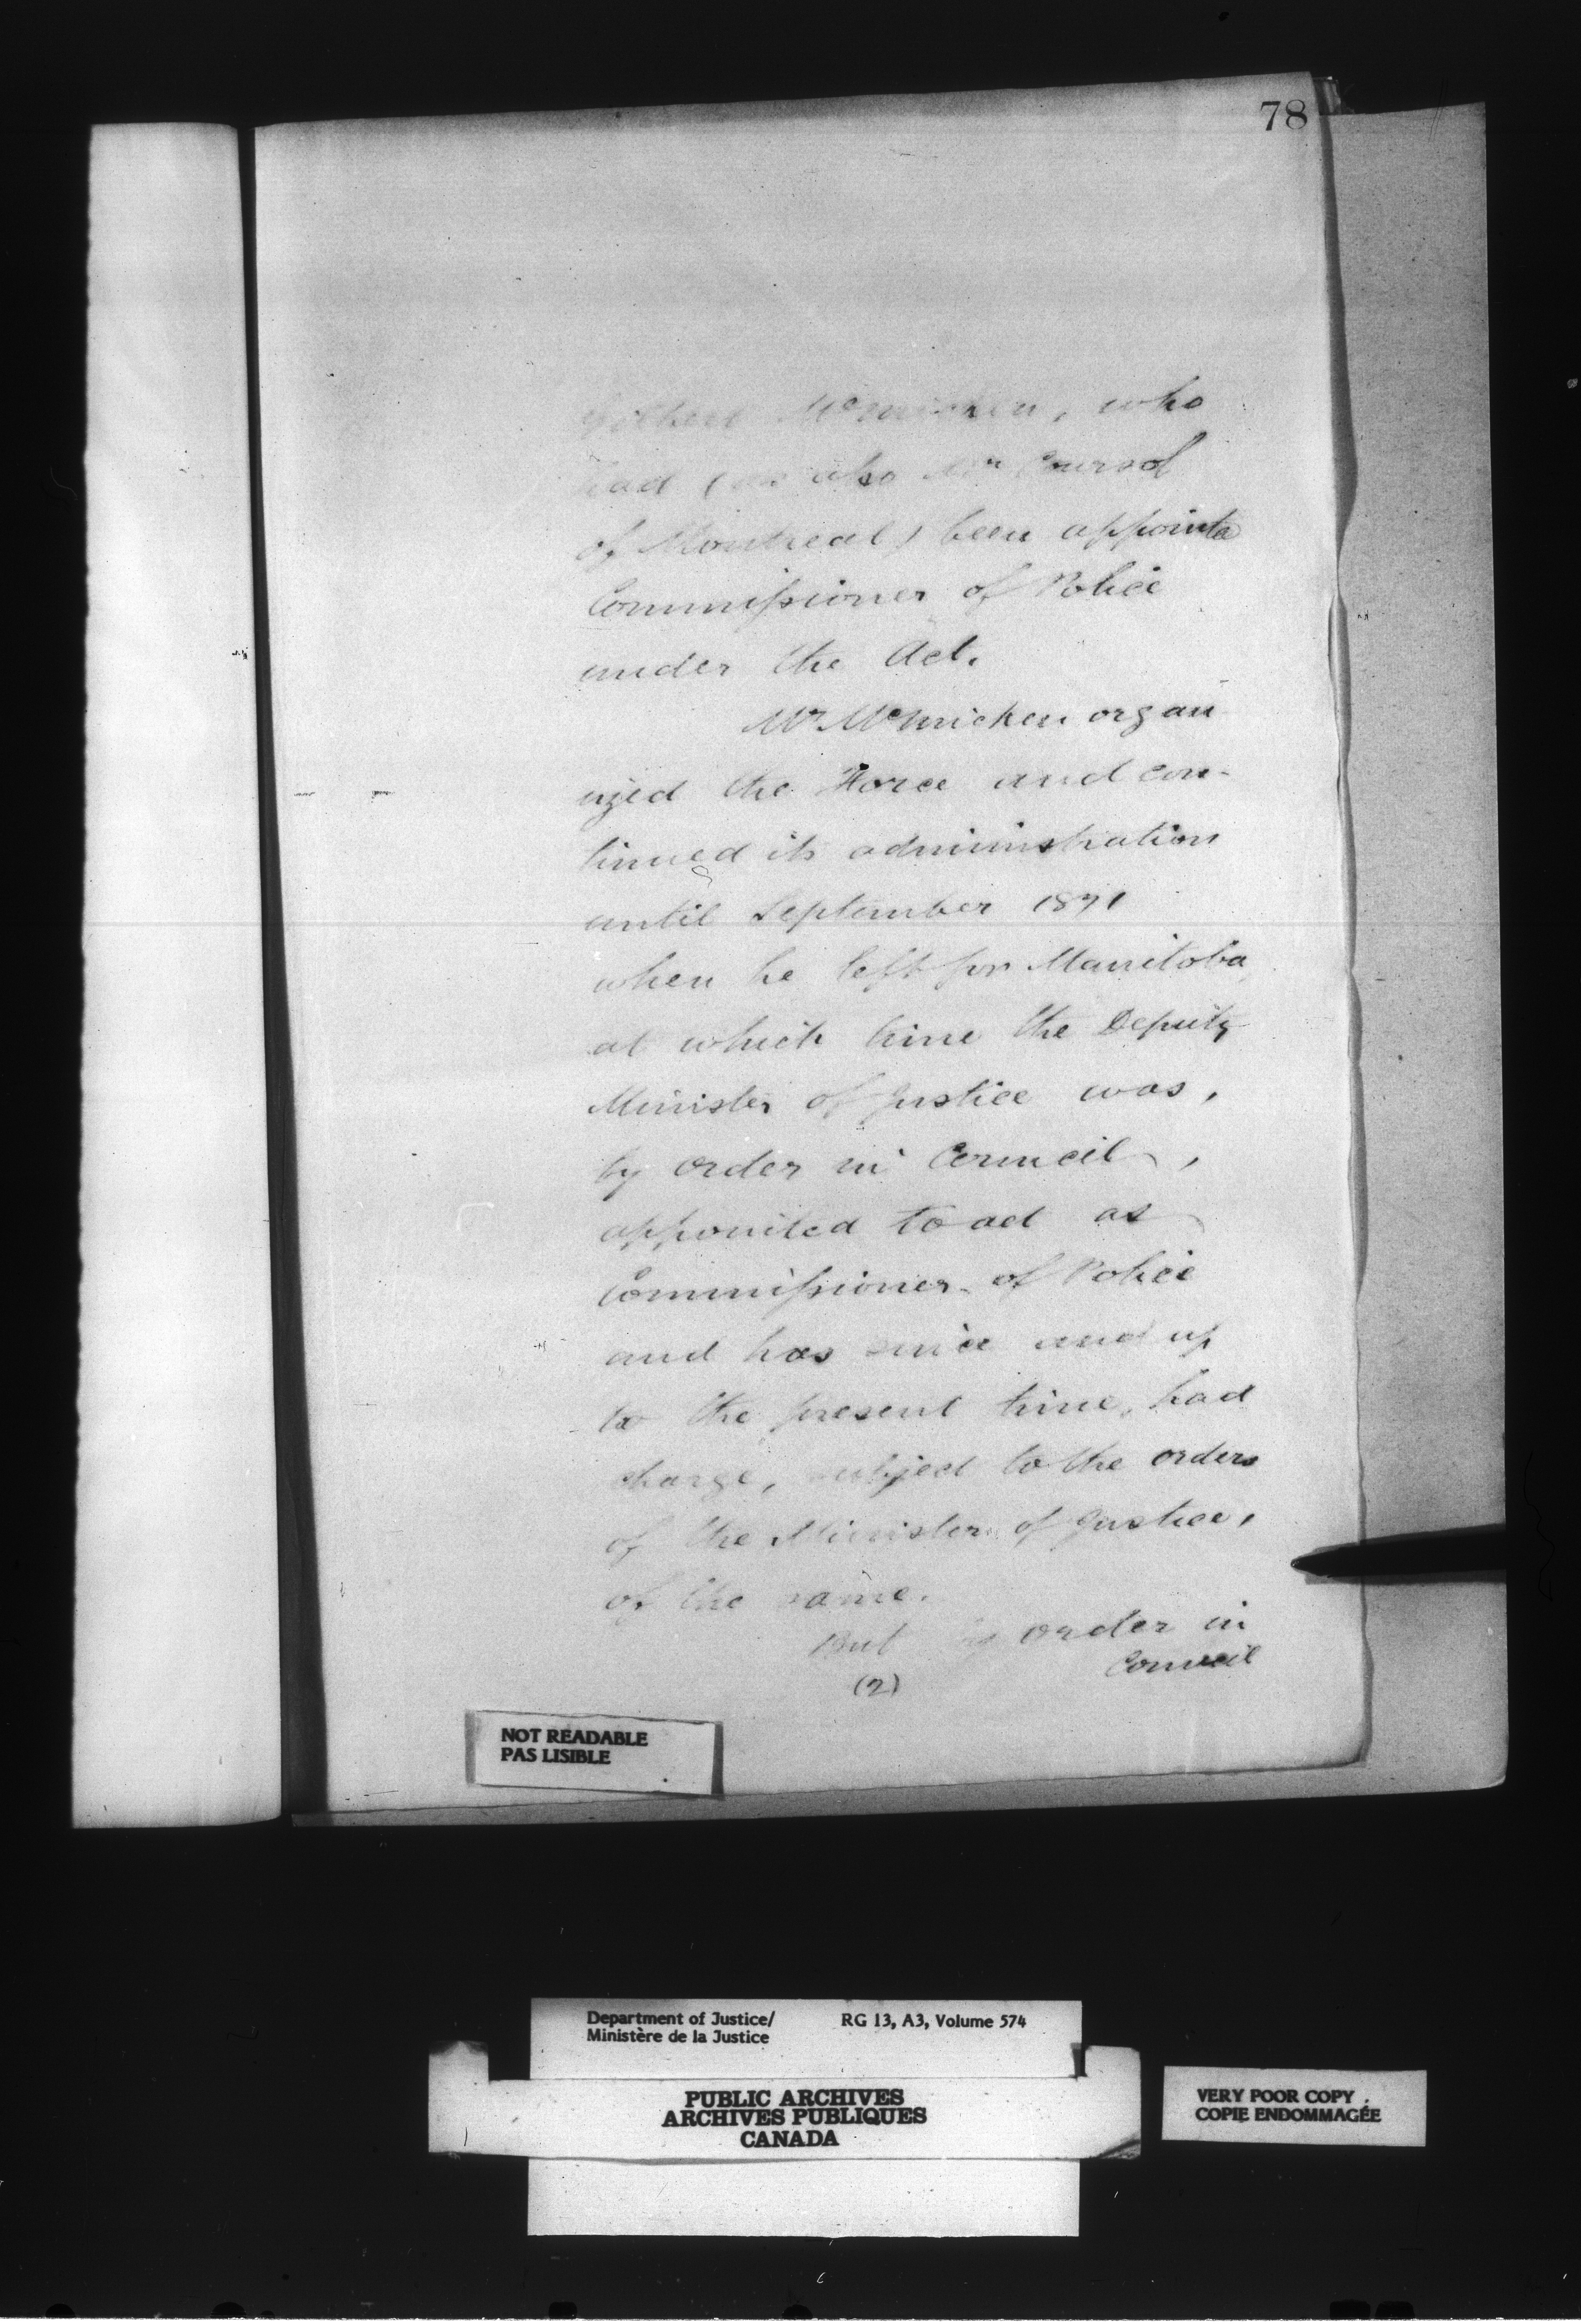 78
Gilbert McMicken, who
had (as also Mr Coursol
of Montreal) been appointed
Commissioner of Police
under the Act.
Mr McMicken organ
ized the Force and con-
tinued its administration
until September 1871
when he left for Manitoba,
at which time the Deputy
Minister of Justice was,
by order in Council,
appointed to act as
Commissioner of Police
and has since and up
to the present time, had
charge, subject to the orders
of the Minister of Justice,
of the same.
But by order in
Council
(2)
NOT READABLE
PAS LISIBLE
Department of Justice/ RG 13, A3, Volume 574
Ministère de la Justice
PUBLIC ARCHIVES
ARCHIVES PUBLIQUES
CANADA
VERY POOR COPY
COPIE ENDOMMAGÉE